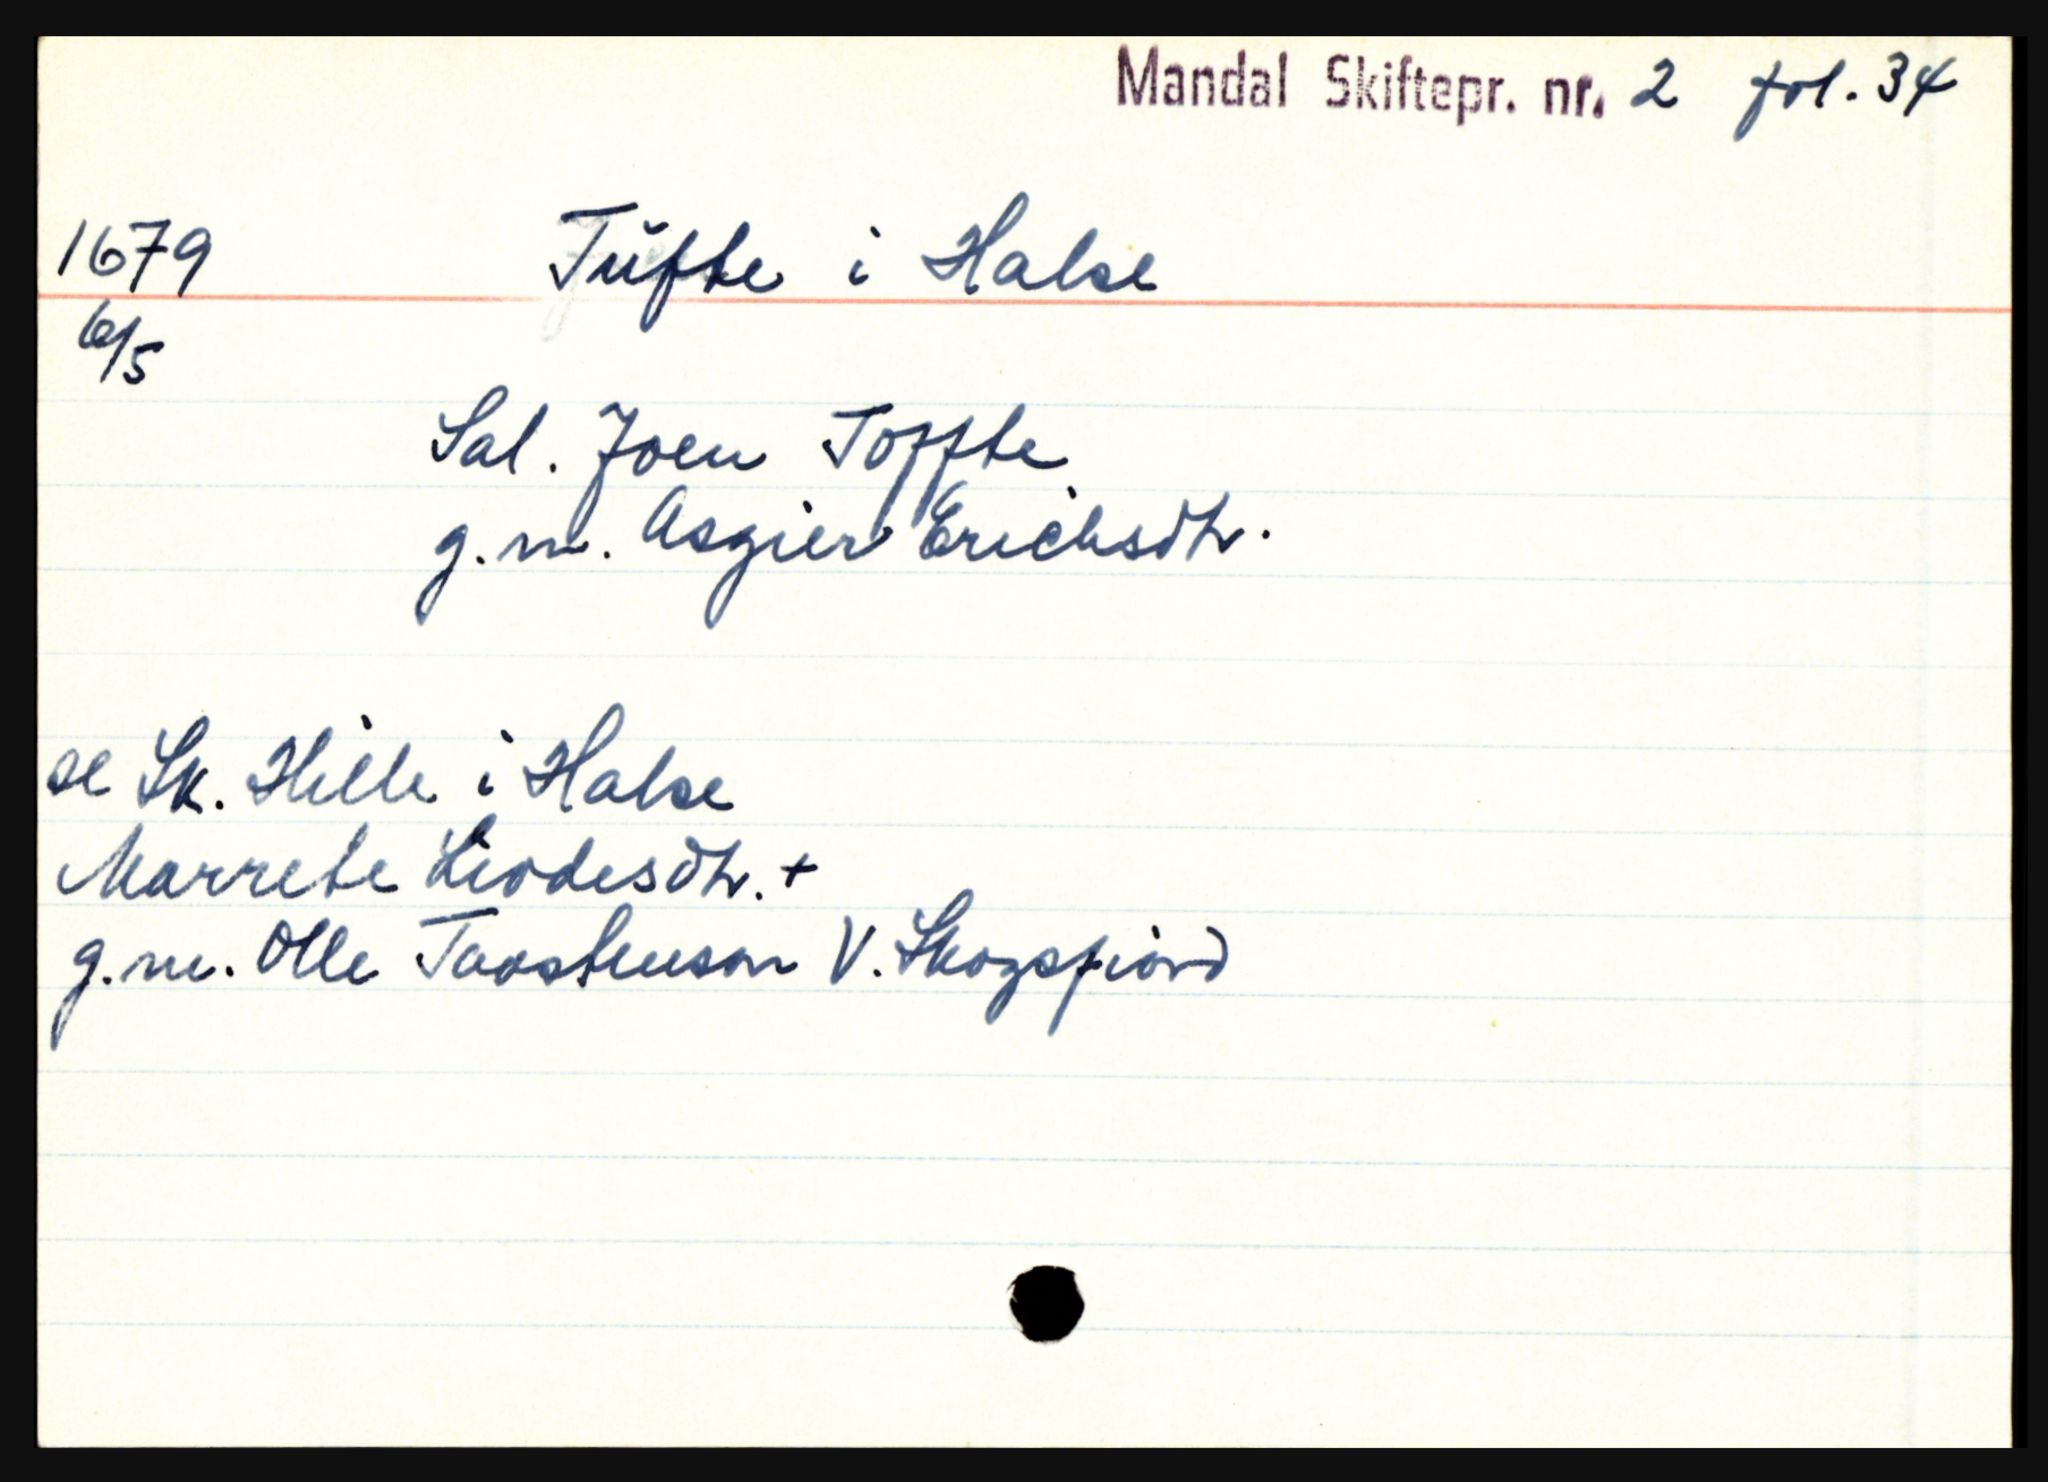 Mandal Skiftepr. nr. 2 fol. 34
1679 Tŭfte i Halse
6/5
Sal. Joen Toffte
g.m. Asgier Erichsdtr.
se Sk. Hille i Halse
Marrete Liodesdtr. +
g.m. Olle Taastenson V. Skogsfiord